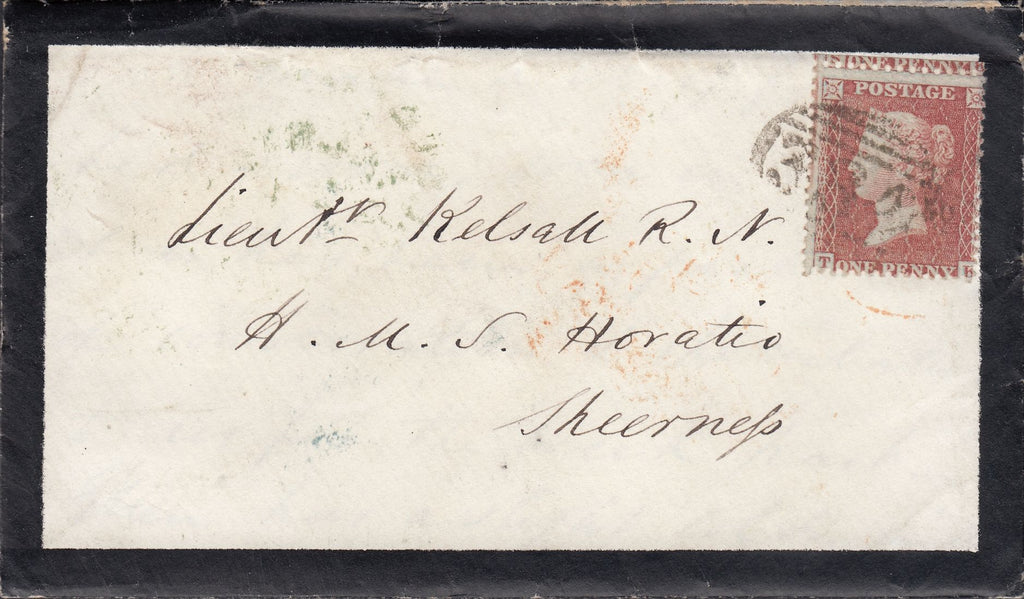 ONE PENNY
POSTAGE
T ONE PENNY
Lieutt Kelsall R. N.
H. M. S. Horatio
Sheerneſs